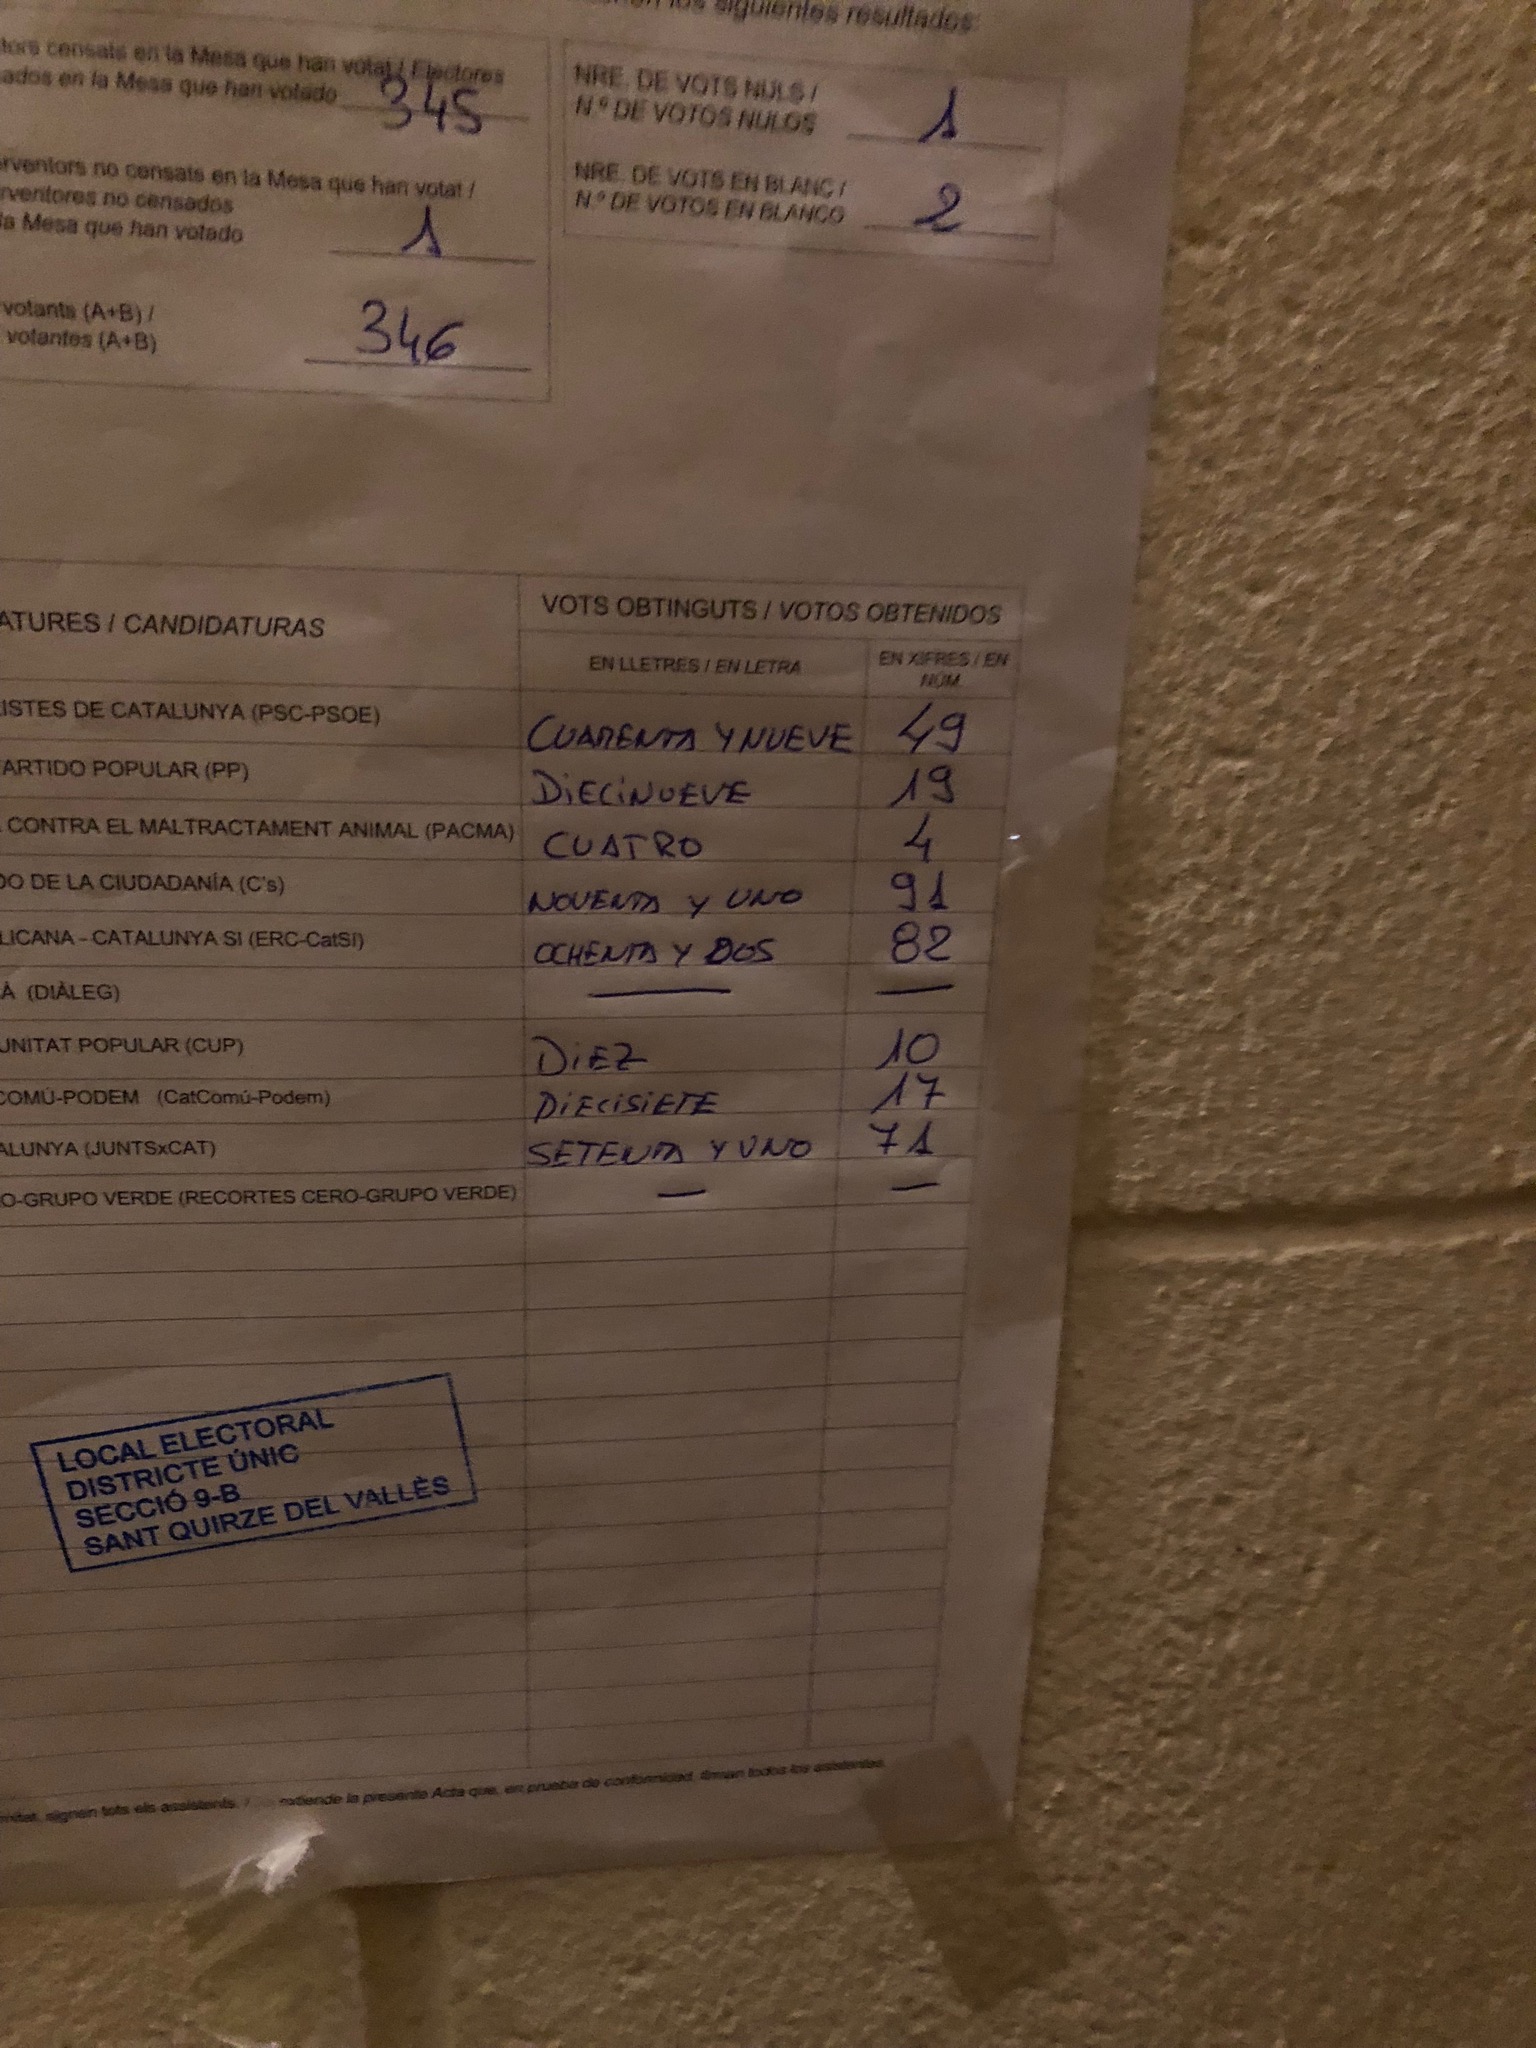 los siguientes resultados:
tors censats en la Mesa que han votat / Electores
ados en la Mesa que han votado 345
rventors no censats en la Mesa que han votat /
rventores no censados
la Mesa que han votado 1
votants (A+B) /
votantes (A+B) 346
NRE. DE VOTS NULS /
N.º DE VOTOS NULOS 1
NRE. DE VOTS EN BLANC /
N.º DE VOTOS EN BLANCO 2
ATURES / CANDIDATURAS
VOTS OBTINGUTS / VOTOS OBTENIDOS
EN LLETRES / EN LETRA
EN XIFRES / EN
NÚM.
ISTES DE CATALUNYA (PSC-PSOE) CUARENTA Y NUEVE 49
ARTIDO POPULAR (PP) DIECINUEVE 19
CONTRA EL MALTRACTAMENT ANIMAL (PACMA) CUATRO 4
DO DE LA CIUDADANÍA (C's) NOVENTA Y UNO 91
LICANA - CATALUNYA SI (ERC-CatSI) OCHENTA Y DOS 82
À (DIÀLEG) — —
UNITAT POPULAR (CUP) DIEZ 10
COMÚ-PODEM (CatComú-Podem) DIECISIETE 17
ALUNYA (JUNTSxCAT) SETENTA Y UNO 71
O-GRUPO VERDE (RECORTES CERO-GRUPO VERDE) — —
LOCAL ELECTORAL
DISTRICTE ÚNIC
SECCIÓ 9-B
SANT QUIRZE DEL VALLÈS
mitat, signen tots els assistents. / extiende la presente Acta que, en prueba de conformidad, firman todos los asistentes.